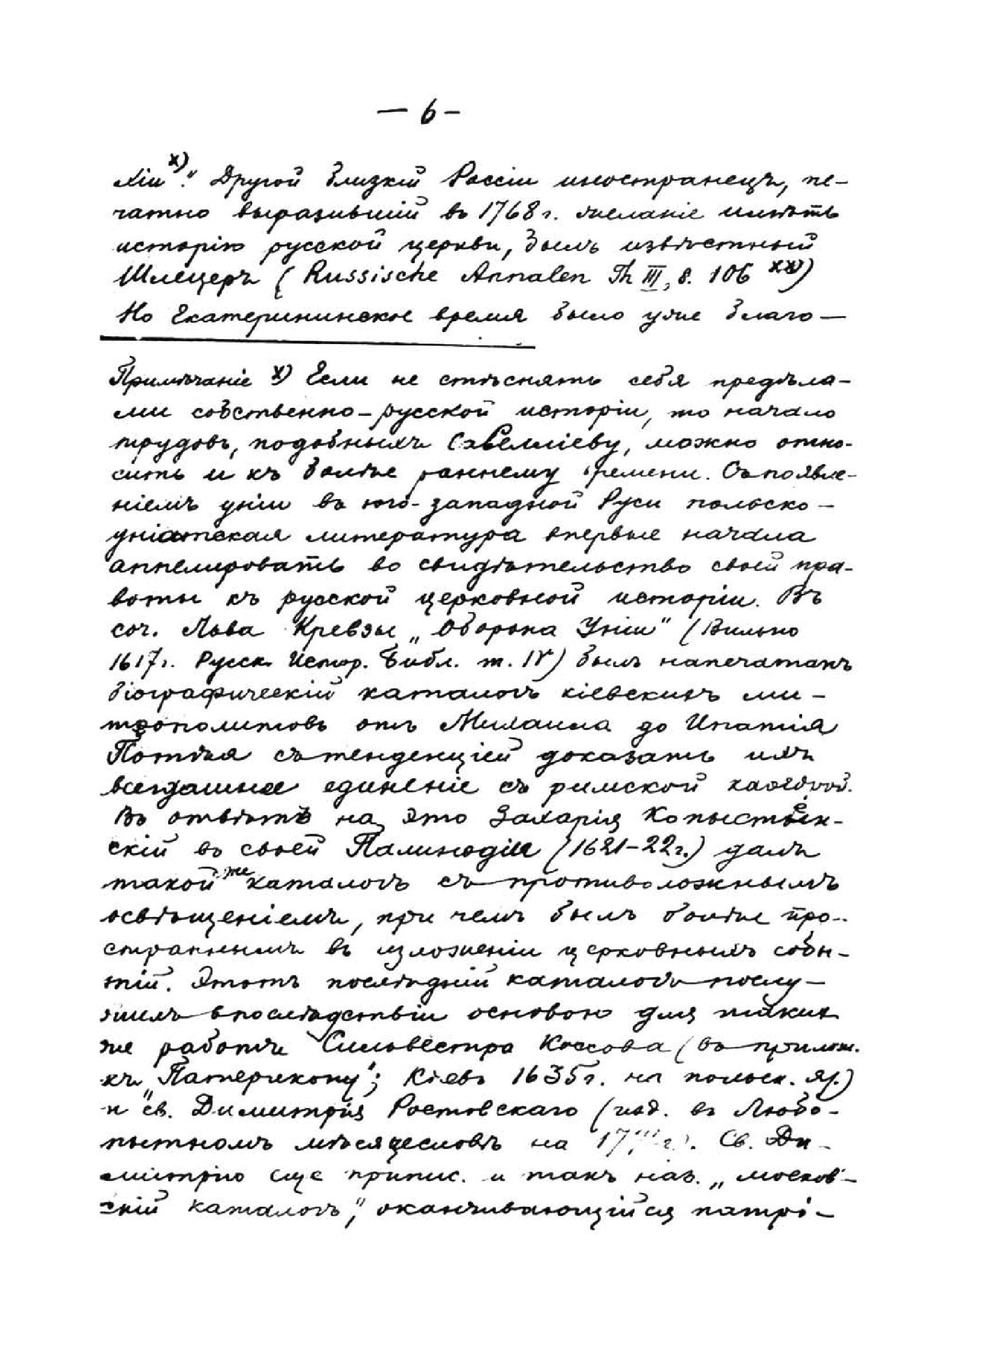 — 6 –
хіи х)." Другой близкій Россіи иностранецъ, пе-
чатно выразившій въ 1768 г. желаніе имѣть
исторію русской церкви, былъ извѣстный
Шлецеръ (Russische Annalen Th III, s. 106 хх)
Но Екатерининское время было уже благо—
Примѣчаніе х) Если не стѣснять себя предѣла-
ми собственно-русской исторіи, то начало
трудовъ, подобныхъ Селлієву, можно отно-
сить и къ болѣе раннему времени. Съ появле-
ніемъ уніи въ юго-западной Руси польско-
уніатская литература впервые начала
аппелировать во свидѣтельство своей пра-
воты къ русской церковной исторіи. Въ
соч. Льва Кревзы „Оборона Уніи" (Вильно
1617 г. Русск. Истор. Библ. т. IV) былъ напечатанъ
біографическій каталогъ кіевскихъ ми-
трополитовъ отъ Михаила до Ипатія
Потѣя съ тенденціей доказать ихъ
всегдашнее единеніе съ римской каѳедрой.
Въ отвѣтъ на это Захарія Копыстен-
скій въ своей Палинодіи (1621–22 г.) далъ
такой же каталогъ съ противоложнымъ
освѣщеніемъ, при чемъ былъ болѣе про-
страннымъ въ изложеніи церковныхъ собы-
тій. Этотъ послѣдній каталогъ послу-
жилъ впослѣдствіи основою для такихъ
же работъ Сильвестра Коссова (въ прилож.
къ „Патерикону"; Кіевъ 1635 г. на польск. яз.)
и св. Димитрія Ростовскаго (изд. въ Любо-
пытномъ мѣсяцесловѣ на г.). Св. Ди-
митрію еще припис. и такъ наз. „москов-
скій каталогъ", оканчивающійся патрі-